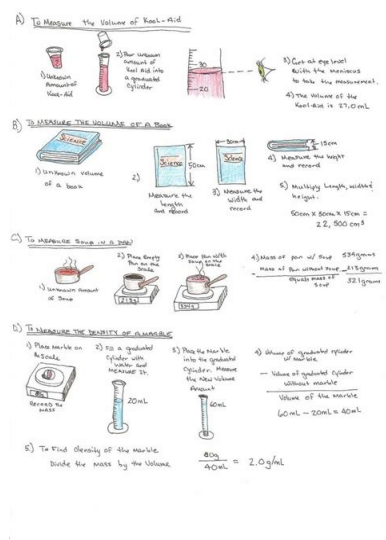 A) To Measure the Volume of Kool-Aid
1) Unknown
Amount of
Kool-Aid
2) Pour Unknown
amount of
Kool Aid into
a graduated
Cylinder
30
20
3) Get at eye level
with the Meniscus
to take the measurement.
4) The volume of the
Kool-Aid is 27.0 mL
B) TO MEASURE THE VOLUME OF A BOOK
Science
1) Unknown volume
of a book
2)
Science
50cm
Measure the
length
and record
30cm
Science
3) Measure the
Width and
record
15cm
4) Measure the height
and record
5) Multiply Length, width &
height.
50cm x 30cm x 15cm =
22,500 cm³
C) TO MEASURE SOUP IN A PAN
1) Unknown Amount
of Soup
2) Place Empty
Pan on the
Scale
213g
3) Place Pan with
Soup on the
Scale
534g
4) Mass of pan w/ soup 534 grams
Mass of Pan without Soup - 213 grams
Equals mass of soup 321 grams
D) TO MEASURE THE DENSITY OF A MARBLE
1) Place Marble on
the scale
80g
RECORD the
MASS
2) Fill a graduated
Cylinder with
water and
MEASURE It.
20mL
3) Place the Marble
into the graduated
Cylinder. Measure
the New Volume
Amount
60mL
4) Volume of graduated cylinder
w/ Marble
- Volume of graduated Cylinder
without marble
Volume of the Marble
60mL - 20mL = 40mL
5) To Find density of the Marble
Divide the Mass by the Volume
80g
40mL
= 2.0g/mL